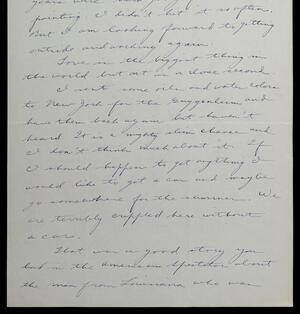 years were
painting. I didn't but it so often.
But I am looking forward to getting
outside and working again.
Love is the biggest thing in
the world but art is a close second.
I sent some oils and water colors
to New York for the Guggenheim and
have them back again but haven't
heard. It is a mighty slim chance and
I don't think much about it. If
I should happen to get anything I
would like to get a car and maybe
go somewhere for the summer. We
are terribly crippled here without
a car.
That was a good story you
had in the American Spectator about
the man from Louisiana who was